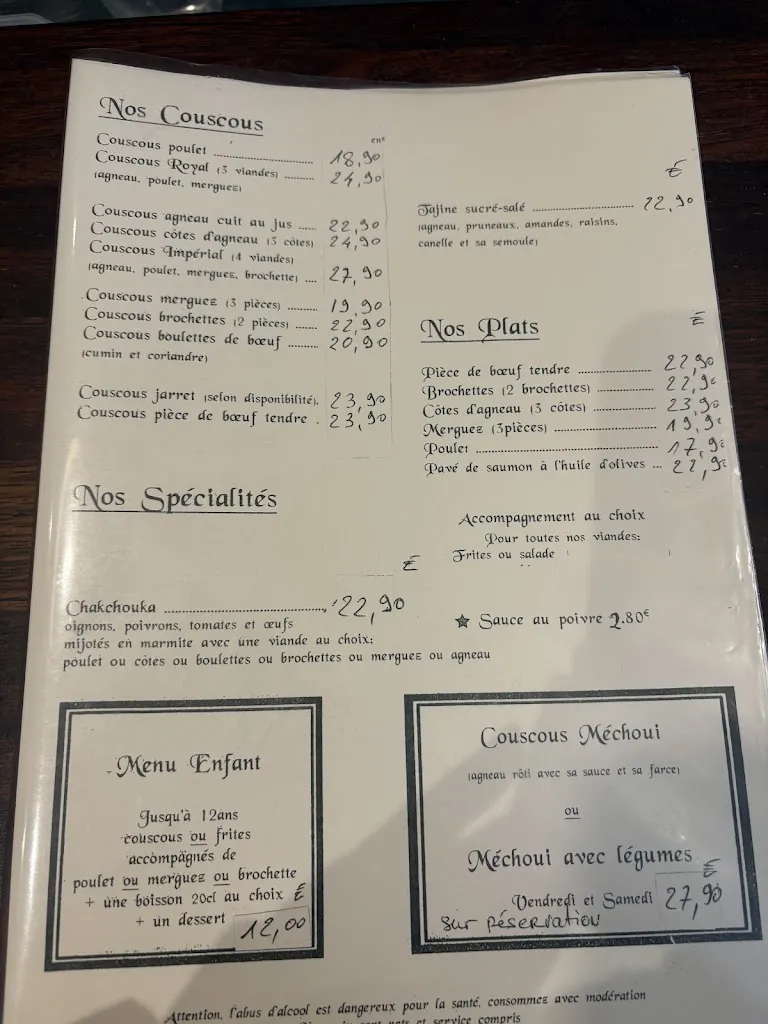 Nos Couscous
en€
Couscous poulet ........ 18,90
Couscous Royal (3 viandes) ........ 24,90
(agneau, poulet, merguez)
Couscous agneau cuit au jus ..... 22,90
Couscous côtes d'agneau (3 côtes) 24,90
Couscous Impérial (4 viandes)
(agneau, poulet, merguez, brochette) .... 27,90
Couscous merguez (3 pièces) ........ 19,90
Couscous brochettes (2 pièces) ....... 22,90
Couscous boulettes de bœuf ......... 20,90
(cumin et coriandre)
Couscous jarret (selon disponibilité). 23,90
Couscous pièce de bœuf tendre . 23,90
€
Tajine sucré-salé ........ 22,90
(agneau, pruneaux, amandes, raisins,
canelle et sa semoule)
Nos Plats €
Pièce de bœuf tendre ........ 22,90
Brochettes (2 brochettes) ........ 22,9€
Côtes d'agneau (3 côtes) ........ 23,90
Merguez (3pièces) ........ 19,9€
Poulet ........ 17,9€
Pavé de saumon à l'huile d'olives ... 22,9€
Accompagnement au choix
Pour toutes nos viandes:
Frites ou salade
★ Sauce au poivre 2.80€
Nos Spécialités
€
Chakchouka ........ 22,90
oignons, poivrons, tomates et œufs
mijotés en marmite avec une viande au choix:
poulet ou côtes ou boulettes ou brochettes ou merguez ou agneau
Menu Enfant
Jusqu'à 12ans
couscous ou frites
accompagnés de
poulet ou merguez ou brochette
+ une boisson 20cl au choix €
+ un dessert 12,00
Couscous Méchoui
(agneau rôti avec sa sauce et sa farce)
ou
Méchoui avec légumes €
Vendredi et Samedi 27,90
sur réservation
Attention, l'abus d'alcool est dangereux pour la santé, consommez avec modération
nets et service compris